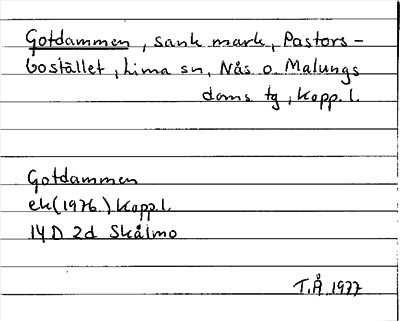 Gotdammen, sank mark, Pastors-
bostället, Lima sn, Nås o. Malungs
doms tg, Kopp. l.
Gotdammen
ek(1976) Kopp.l.
14 D 2d Skålmo
T.Å 1977